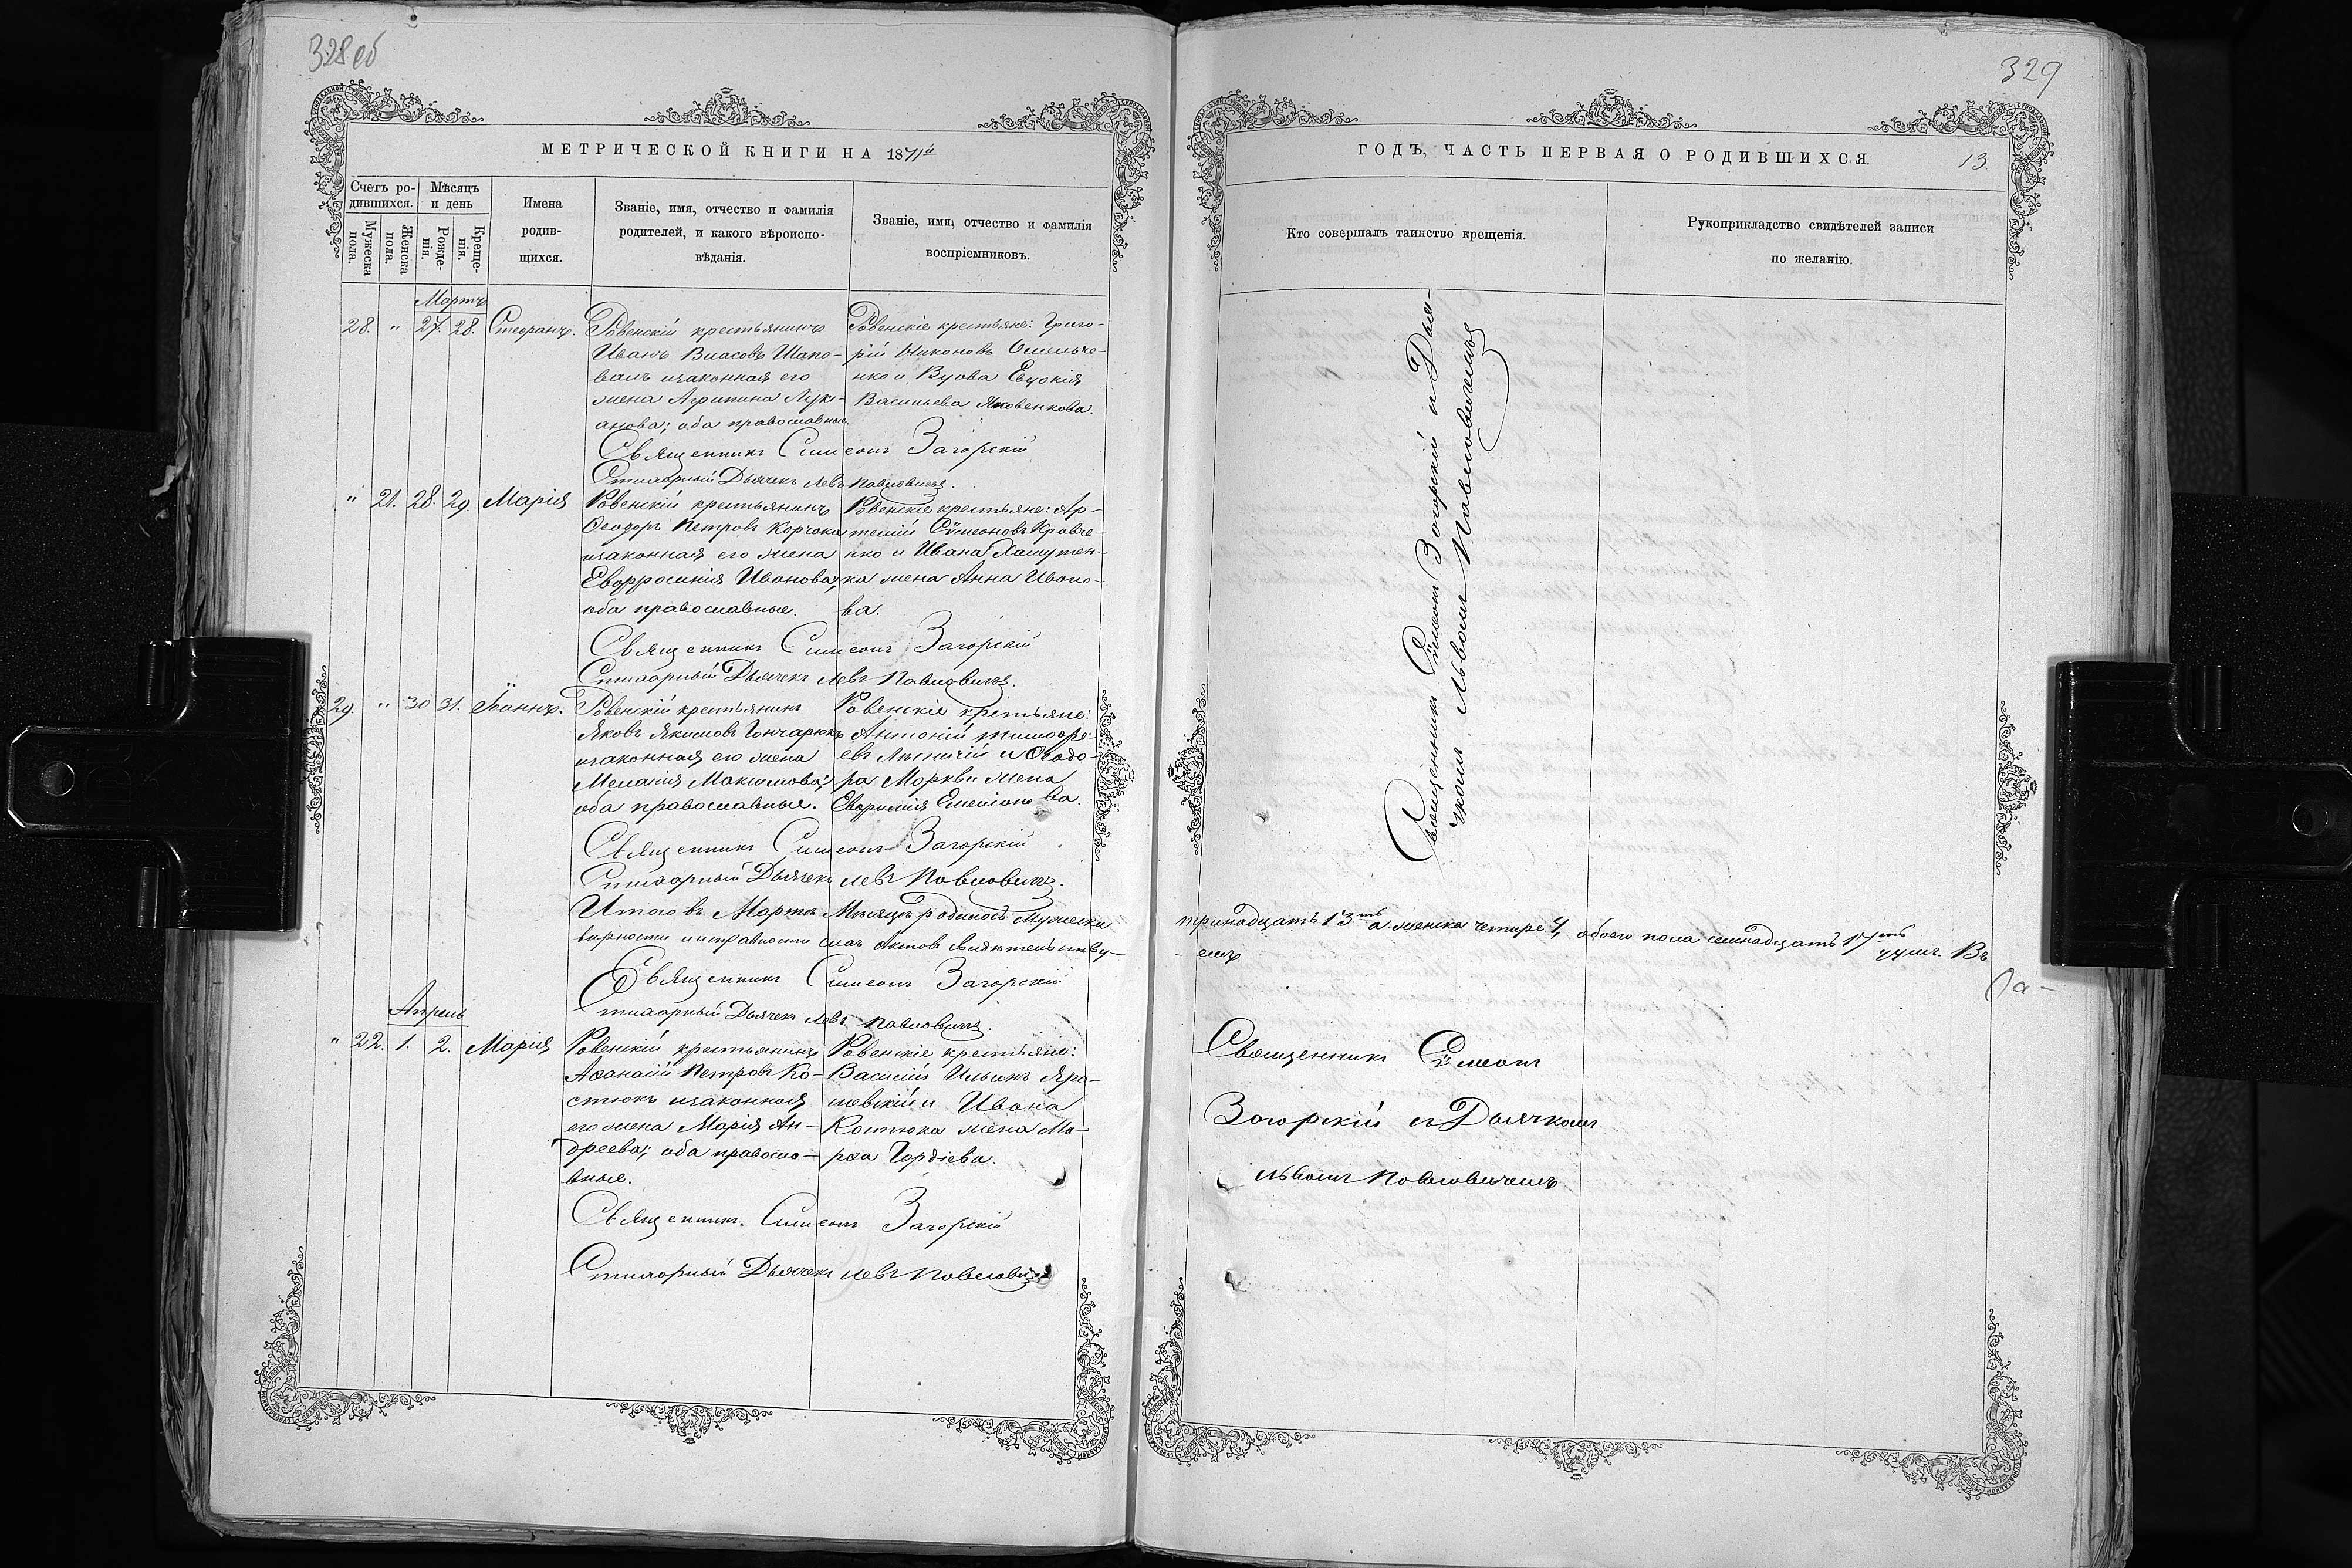 328 об
МЕТРИЧЕСКОЙ КНИГИ НА 1871й
Счетъ ро-
дившихся.
Мѣсяцъ
и день
Мужеска
пола.
Женска
пола.
Рожде-
нія.
Креще-
нія.
Имена
родив-
щихся.
Званіе, имя, отчество и фамилія
родителей, и какого вѣроиспо-
вѣданія.
Званіе, имя, отчество и фамилія
воспріемниковъ.
Мартъ
28. " 27. 28. Стефанъ.
Ровенскій крестьянинъ
Иванъ Власовъ Шапо-
валъ изаконная его
жена Агрипина Лукі-
анова; оба православные.
Ровенскіе крестьяне: Григо-
рій Никоновъ Омельче-
нко и Вдова Евдокія
Васильева Яковенкова.
Священникъ Симеонъ Загорскій
Стихарный Дьячекъ Левъ Павловичъ.
" 21. 28. 29. Марія
Ровенскій крестьянинъ
Ѳеодоръ Петровъ Корчака
изаконная его жена
Евфросинія Иванова;
оба православные.
Ровенскіе крестьяне: Ар-
темій Сѵмеоновъ Кравче-
нко и Ивана
ка жена Анна Ивано-
ва.
Священникъ Симеонъ Загорскій
Стихарный Дьячекъ Левъ Павловичъ.
29. " 30 31. Іоаннъ.
Ровенскій крестьянинъ
Яковъ Якимовъ Гончарюкъ
изаконная его жена
Меланія Максимова;
оба православные.
Ровенскіе крестьяне:
Антоній Тимофе-
евъ и Ѳеодо-
ра Моркви жена
Евфимія
Священникъ Симеонъ Загорскій
Стихарный Дьячекъ Левъ Павловичъ.
Итого въ Мартѣ Мѣсяцѣ родилось Мужеска
вѣрности и исправности сихъ Актовъ Свидѣтельству-
Священникъ Симеонъ Загорскій
Стихарный Дьячекъ Левъ Павловичъ.
Апрель
" 22. 1. 2. Марія
Ровенскій крестьянинъ
Аѳанасій Петровъ Ко-
стюкъ изаконная
его жена Марія Ан-
дреева; оба правосла-
вные.
Ровенскіе крестьяне:
Василій Ильинъ Яро-
шевскій и Ивана
Костюка жена Ма-
рѳа Гордіева.
Священникъ Симеонъ Загорскій
Стихарный Дьячекъ Левъ Павловичъ
329
ГОДЪ, ЧАСТЬ ПЕРВАЯ О РОДИВШИХСЯ.
13.
Кто совершалъ таинство крещенія.
Рукоприкладство свидѣтелей записи
по желанію.
Священникъ Сѵмеонъ Загорскій и Дья-
чкомъ Львомъ Павловичемъ
тринадцать 13ть а женска четыре 4, обоего пола семнадцать 17ть душъ. Въ
емъ
Священникъ Сѵмеонъ
Загорскій съ Дьячкомъ
Львомъ Павловичемъ